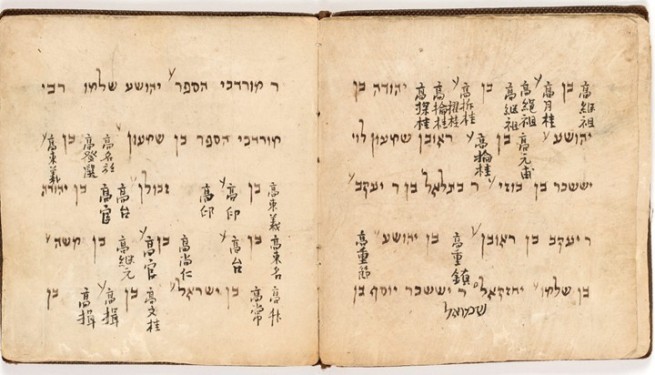 高繼祖 בן 高月桂 高繩祖 高繼祖 בן 高折桂 高擢桂 高掄桂 高探桂 יהודה בן
יהושע 高元甫 בן 高掄桂 ראובן שמעון לוי
יששכר בן בוזי ר בצלאל בן ר יעקב
ר יעקב בן ראובן 高重鎮 בן יהושע 高重節
בן שלמו יחזקאל ר יששכר יוסף בן
שמואל
ר מורדכי הספר יהושע שלמו רבי
מורדכי הספר בן שמעון 高登 בן 高東義
高東義 בן 高邱 高邱 זבולן 高台 高官 בן יהודה
高東名 בן 高台 高尚仁 בן 高官 高繼元 בן משה
高朴 高常 בן ישראל 高文桂 高揖 高揖 בן